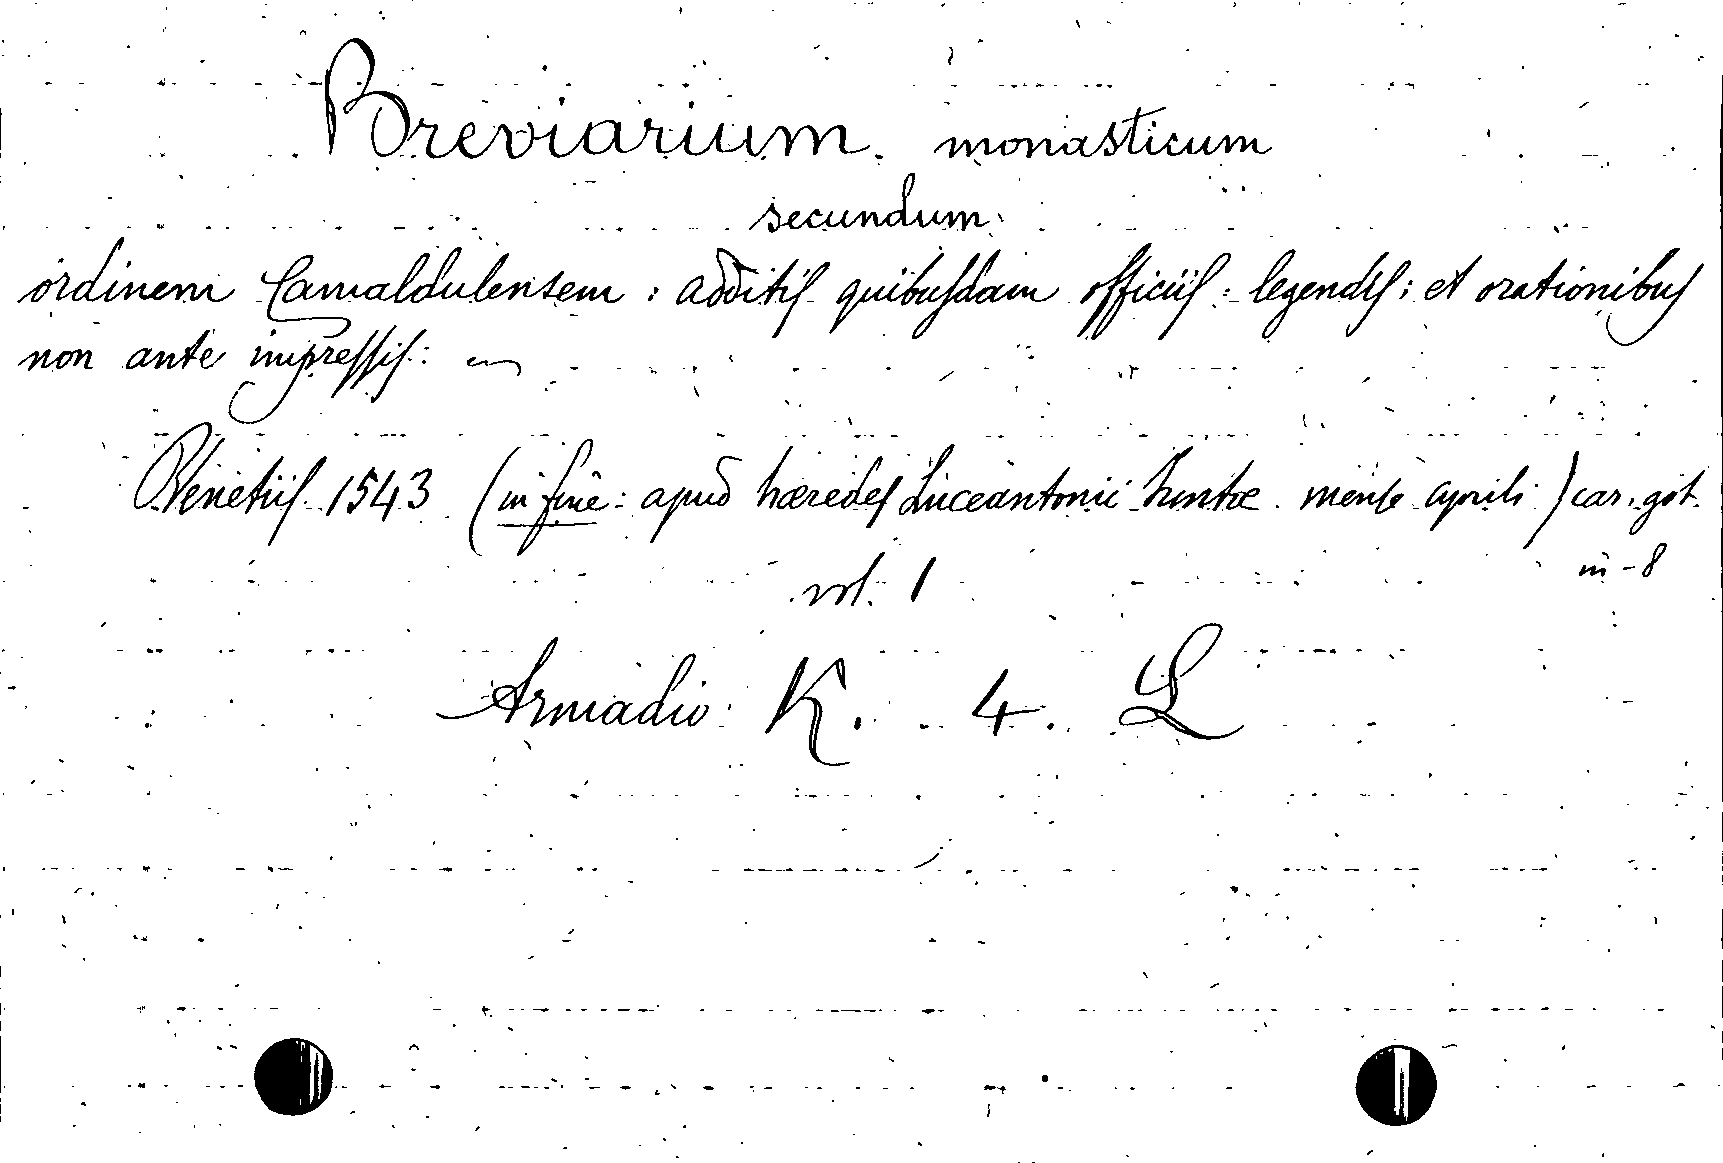 Breviarium monasticum
secundum
ordinem Camaldulensem : additis quibusdam officiis : legendis : et orationibus
non ante impressis :
Venetiis 1543 (in fine : apud hæredes Luceantonii Juntæ mense aprili) car. got.
in - 8
vol. 1
Armadio K. 4. L